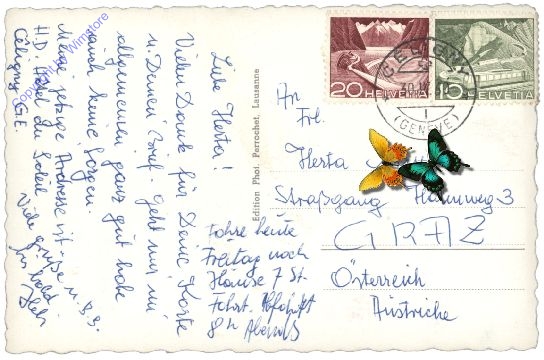 Liebe Herta!
Vielen Dank für Deine Karte
u. Deinen Brief. Geht mir im
allgemeinen ganz gut habe
auch keine Sorgen.
Meine jetzige Adresse ist
H.D. Hotel du Soleil
Céligny G.E.
Viele Grüße u. 
bis bald
Fahre heute
Freitag nach
Hause 7 St.
Fahrt. Abfahrt
8h Abends
Edition Phot. Perrochet, Lausanne
20 HELVETIA
15 HELVETIA
CELIGNY
(GENEVE)
An
Frl.
Herta
Straßgang Hamweg 3
GRAZ
Österreich
Autriche
Winstore